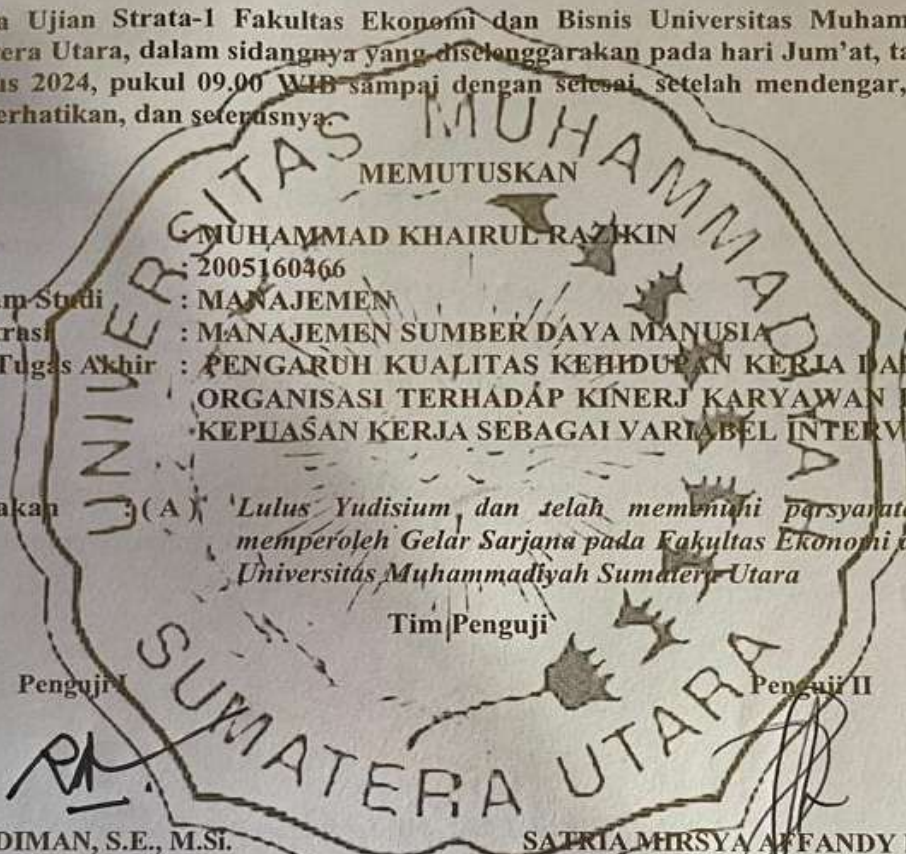 a Ujian Strata-1 Fakultas Ekonomi dan Bisnis Universitas Muham
era Utara, dalam sidangnya yang diselenggarakan pada hari Jum'at, ta
us 2024, pukul 09.00 WIB sampai dengan selesai, setelah mendengar,
erhatikan, dan seterusnya.
MEMUTUSKAN
: MUHAMMAD KHAIRUL RAZIKIN
: 2005160466
m Studi : MANAJEMEN
trasi : MANAJEMEN SUMBER DAYA MANUSIA
Tugas Akhir : PENGARUH KUALITAS KEHIDUPAN KERJA DA
ORGANISASI TERHADAP KINERJ KARYAWAN
KEPUASAN KERJA SEBAGAI VARIABEL INTERV
akan : ( A ) 'Lulus Yudisium dan telah memenuhi persyarata
memperoleh Gelar Sarjana pada Fakultas Ekonomi
Universitas Muhammadiyah Sumatera Utara
Tim Penguji
Penguji I Penguji II
DIMAN, S.E., M.Si. SATRIA MIRSYA AFFANDY
UNIVERSITAS MUHAMMADIYAH
SUMATERA UTARA